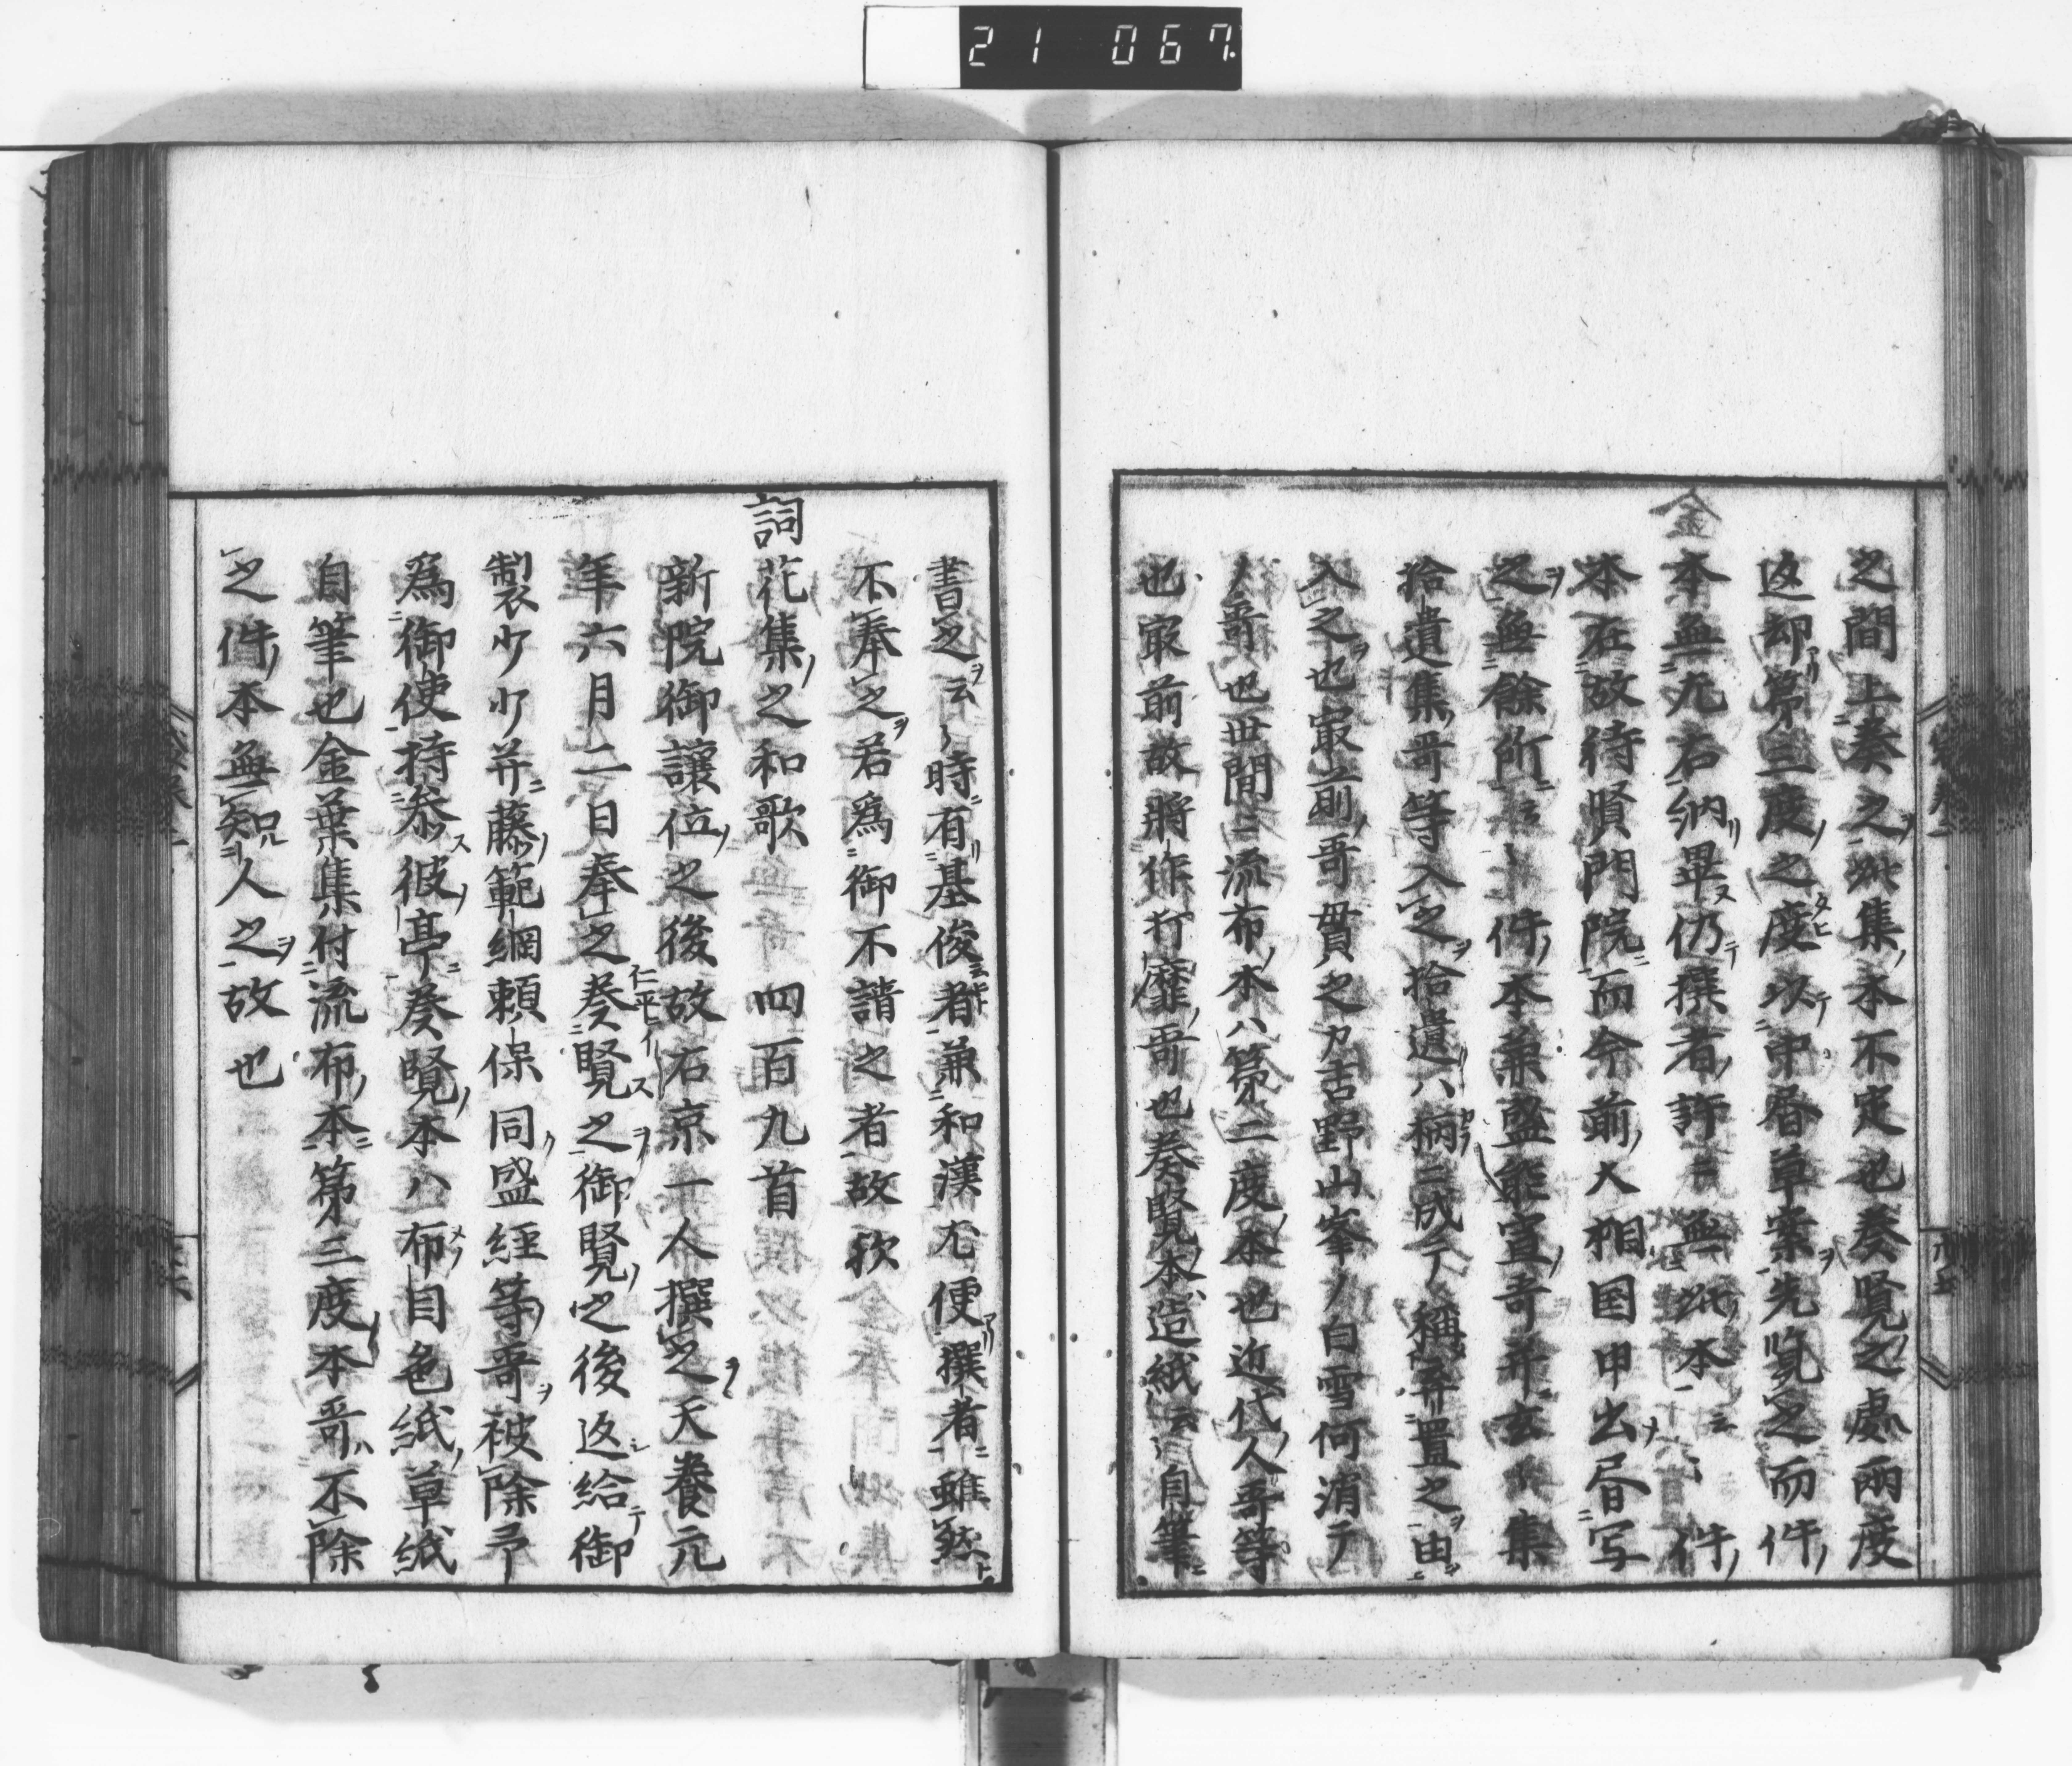 21 067
之間上奏之此集本不定也奏覧之處兩度
返却第三度之度以中㫪草案先覧之而件
金
本無左右納畢仍撰者許ニ無此本云〻件
本在故待賢門院而今前大相国申出㫪写
之無餘所云〻件本兼盛能宣哥并玄〻集
拾遺集哥等入之拾遺ハ柄ニ成テ稱弃置之由
入之也最前哥貫之カ吉野山峯ノ白雪何消テ
ノ哥也世間ニ流布本ハ第二度本也近代人哥等
也最前故將作打靡哥也奏覧本造紙云〻自筆
書之云〻時有基俊者兼和漢尤便撰者雖然
不奉之若為御不請之者故歟
詞花集之和歌 四百九首
新院御讓位之後故右京一人撰之天養元
年六月二日奉之奏覧之御覧之後返給御
仁平ニイ
製少少并藤範綱頼保同盛経等哥被除予
為御使持參彼亭奏覧本ハ布目色紙草紙
自筆也金葉集付流布本第三度本哥不除
之件本無知人之故也